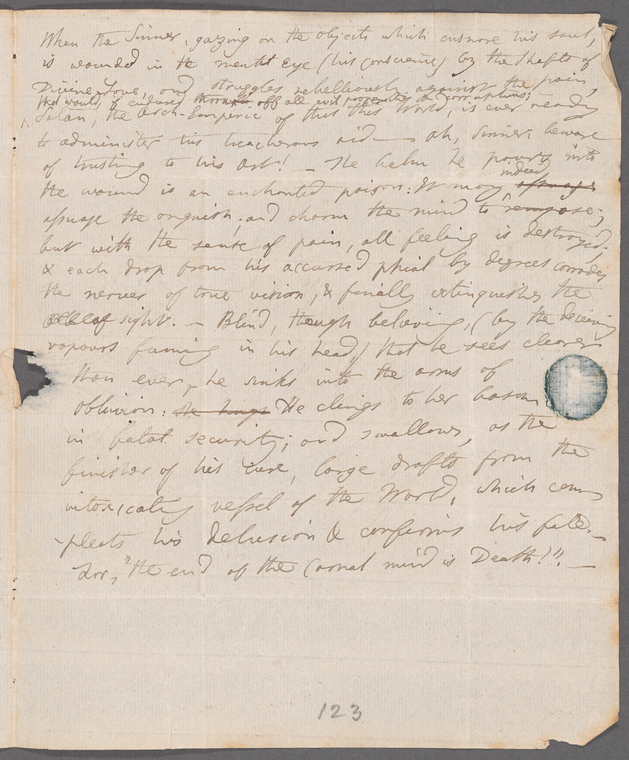 When the Sinner, gazing on the objects which ensnare his soul,
is wounded in the mental Eye (his conscience) by the shafts of
Divine Love, and struggles rebelliously against the pain,
that would, if endured, off all evil propensities & corruptions;
Satan, the Arch-Emperic of this World, is ever ready
to administer his treacherous aid – ah, Sinner, beware
of trusting to his art! – The balm he pours into
indeed
the wound is an enchanted poison: It may assuage
assuage the anguish, and charm the mind to repose;
but with the sense of pain, all feeling is destroyed;
& each drop from his accursed phial by degrees corrodes
the nerves of true vision, & finally extinguishes the
sight. – Blind, though believing, (by the
vapours fuming in his head) that he sees clearer
than ever, he sinks into the arms of
oblivion: He hangs He clings to her bosom
in fatal security; and swallows, as the
finisher of his cure, large drafts from the
intoxicating vessel of the World, which com
-pleats his delusion & confirms his fate. –
For, "the end of the Carnal mind is Death!". –
123